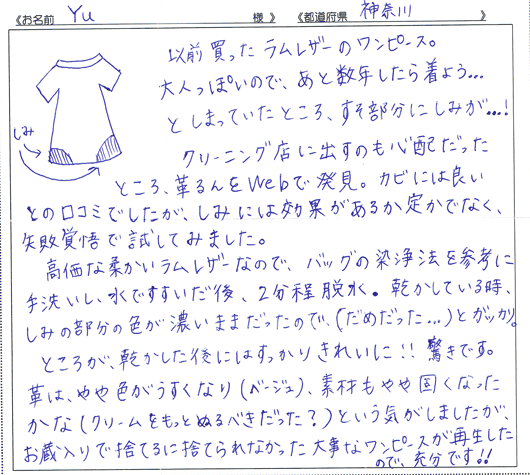 《お名前 Yu 様》 《都道府県 神奈川 》
以前買ったラムレザーのワンピース。
大人っぽいので、あと数年したら着よう…
としまっていたところ、すそ部分にしみが…!
しみ
クリーニング店に出すのも心配だった
ところ、革るんをWebで発見。カビには良い
との口コミでしたが、しみには効果があるか定かでなく、
失敗覚悟で試してみました。
高価な柔かいラムレザーなので、バッグの染浄法を参考に
手洗いし、水ですすいだ後、2分程脱水。乾かしている時、
しみの部分の色が濃いままだったので、(だめだった…)とガッカリ。
ところが、乾かした後にはすっかりきれいに!! 驚きです。
革は、やや色がうすくなり(ベージュ)、素材もやや固くなった
かな(クリームをもっとぬるべきだった?)という気がしましたが、
お蔵入りで捨てるに捨てられなかった大事なワンピースが再生した
ので、充分です!!